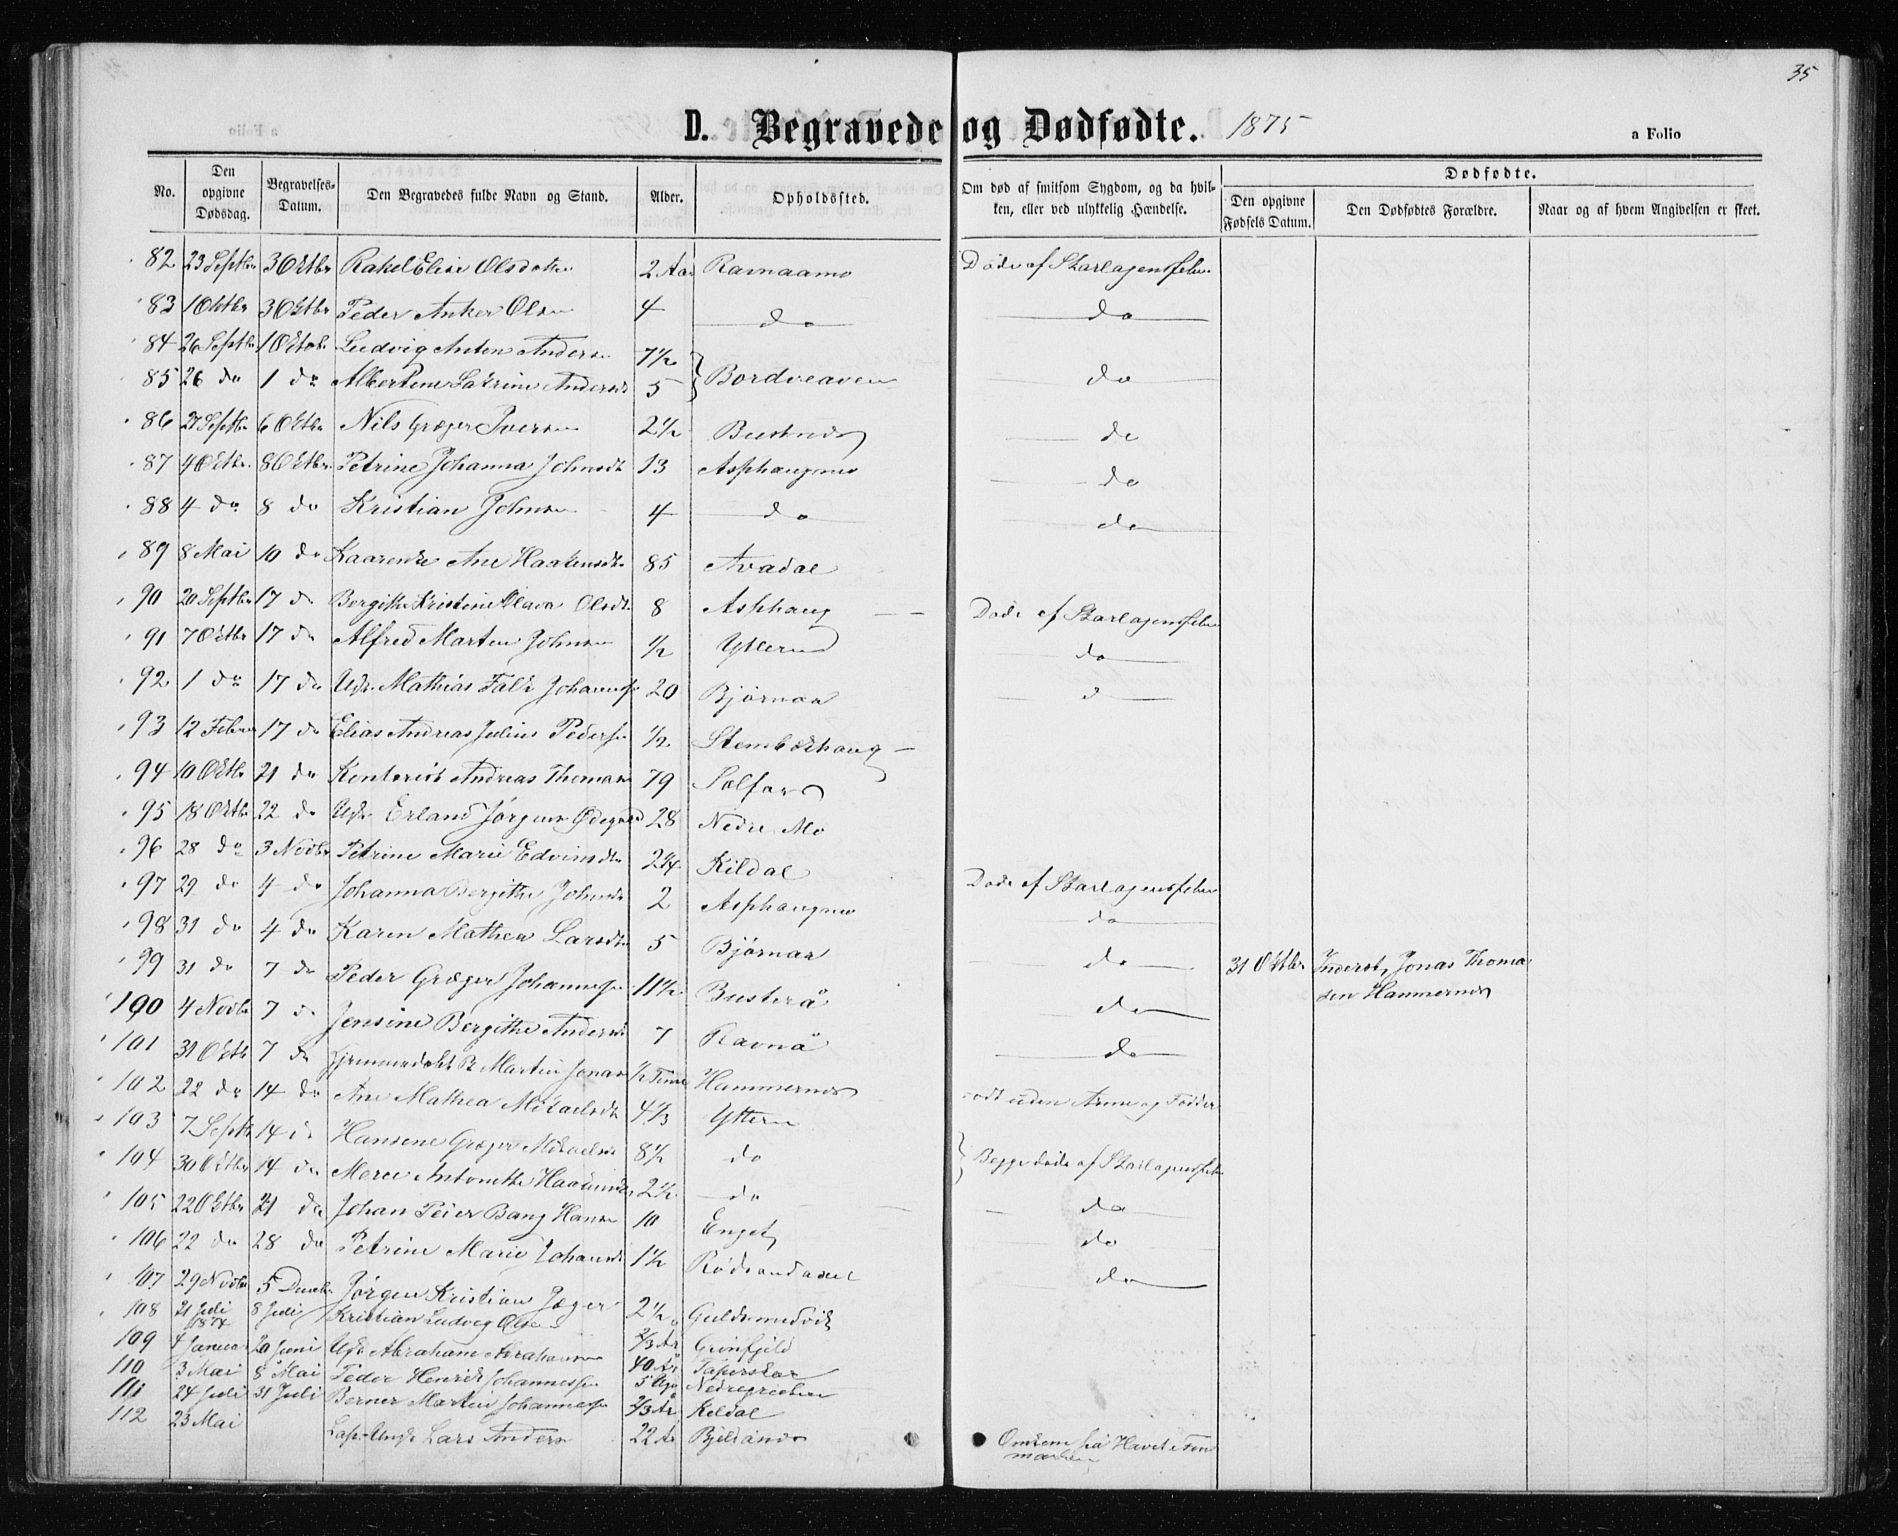 35
D. Begravede og Dødfødte. 1875
a Folio
No. | Den opgivne Dødsdag. | Begravelses-Datum. | Den Begravedes fulde Navn og Stand. | Alder. | Opholdssted. | Om død af smitsom Sygdom, og da hvilken, eller ved ulykkelig Hændelse. | Dødfødte. Den opgivne Fødsels Datum. | Den Dødfødtes Forældre. | Naar og af hvem Angivelsen er skeet.
82 23 Septbr 3 Oktbr Rakel Elise Olsdatter 2 Aar Ravnaamo Døde af Skarlagensfeber
83 1 Oktbr 3 Oktbr Peder Anker Olsen 4 do do
84 26 Septbr 1 Oktobr Ludvig Anton Andersen 7½
85 26 do 1 do Albertine Katrine Andersdt 5 Bordveaven do
86 27 Septbr 6 Oktbr Nils Græger Iversen 2½ Bustnes do
87 4 Oktbr 8 Oktbr Petrine Johanna Johnsdt 13 Asphaugmo do
88 4 do 8 do Kristian Johnsen 4 do do
89 8 Mai 10 do Ane Haakensdtr 85 Avadal
90 20 Septbr 17 do Bergithe Kristine Olava Olsdtr 8 Asphaug Døde af Skarlagensfeber
91 7 Oktbr 17 do Alfred Martin Johnsen ½ Ytteren do
92 1 do 17 do Ugk. Mathias Falk Johannesen 20 Bjørnaa d
93 12 Febr 17 do Elias Andreas Julius Pedersen ½ Stenbækhaug
94 10 Oktbr 21 do Andreas Thomasen 79 Selfors
95 18 Oktbr 22 do Ugk. Erland Jørgen Ødegaard 28 Nedre Mo
96 28 do 3 Novbr Petrine Marie Edvinsdtr 2¼ Kildal
97 29 do 4 do Johanna Bergithe Johnsdt 2 Asphaugmo Døde af Skarlagensfeber
98 31 do 4 do Karen Mathea Larsdtr 5 Bjørnaa do
99 31 do 7 do Peder Græger Johannesen 11½ Busteraa do 31 Oktbr Inderst, Jonas Thomasen Hammernes
100 4 Novbr 7 do Jensine Bergithe Andersdt 7 Ravnå do
101 31 Oktb 7 do Martin Jonasen ½ Time Hammernes do
102 22 do 14 do Ane Mathea Mikaelsdt 4⅓ Ytteren født uden Arme og Fødder
103 7 Septb 14 do Hansene Græger Mikaelsdt 8½ do
104 30 Oktbr 14 do Antonette 2½ do Begge døde af Skarlagensfeber
105 22 Oktbr 21 do Johan Peter Bang Hansen 10 Enget do
106 22 do 28 do Petrine Marie Johansdt 1½ Rødsandaael do
107 29 Novbr 5 Decbr Jørgen Kristian Jæger 2½ Guldsmedvik do
108 21 Juli 1874 8 Juli Kristian Ludvig Olsen ⅔ Ar Grønfjeld
109 4 Januar 20 Juni Ugk. Abraham Abrahamsen 40 Ar
110 3 Mai 8 Mai Peder Henrik Johannessen 5
111 24 Juli 31 Juli Berner Martin Johannesen ⅔ Ar Kildal
112 23 Mai Lap-Ungk Lars Andersen 22 Ar Omkom paa Havet i Finmarken